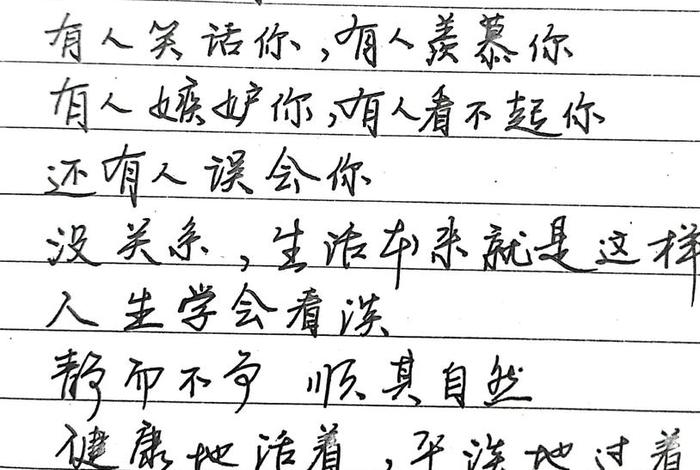 有人笑话你,有人羡慕你
有人嫉妒你,有人看不起你
还有人误会你
没关系,生活本来就是这样
人生学会看淡
静而不争 顺其自然
健康地活着,平淡地过着